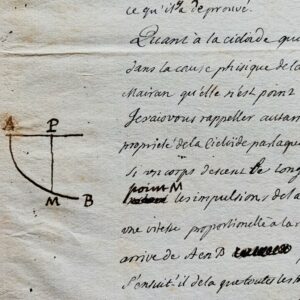 ce qu'il a deprouvé.
Quant à la cicloïde que
dans la cause phisique de la
Mairan qu'elle n'est point
Je vais vous rappeller autant
A P
propriété de la Cicloïde par laque
Si un corps descend le long
point M
les impulsions de la
M B
une vitesse proportionelle à la
arrive de A en B
S'ensuit il de la que toutes les